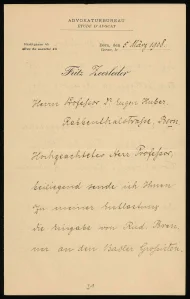 ADVOKATURBUREAU
ETUDE D'AVOCAT
Bern, den 5. März 1908.
Fritz Zeerleder
Herrn Professor Dr. Eugen Huber,
Rabbenthalstrasse, Bern
Hochgeachteter Herr Professor,
beiliegend sende ich Ihnen
zu meiner Entlastung
die Eingabe von Rud. Brenner
an den Basler Grossrat